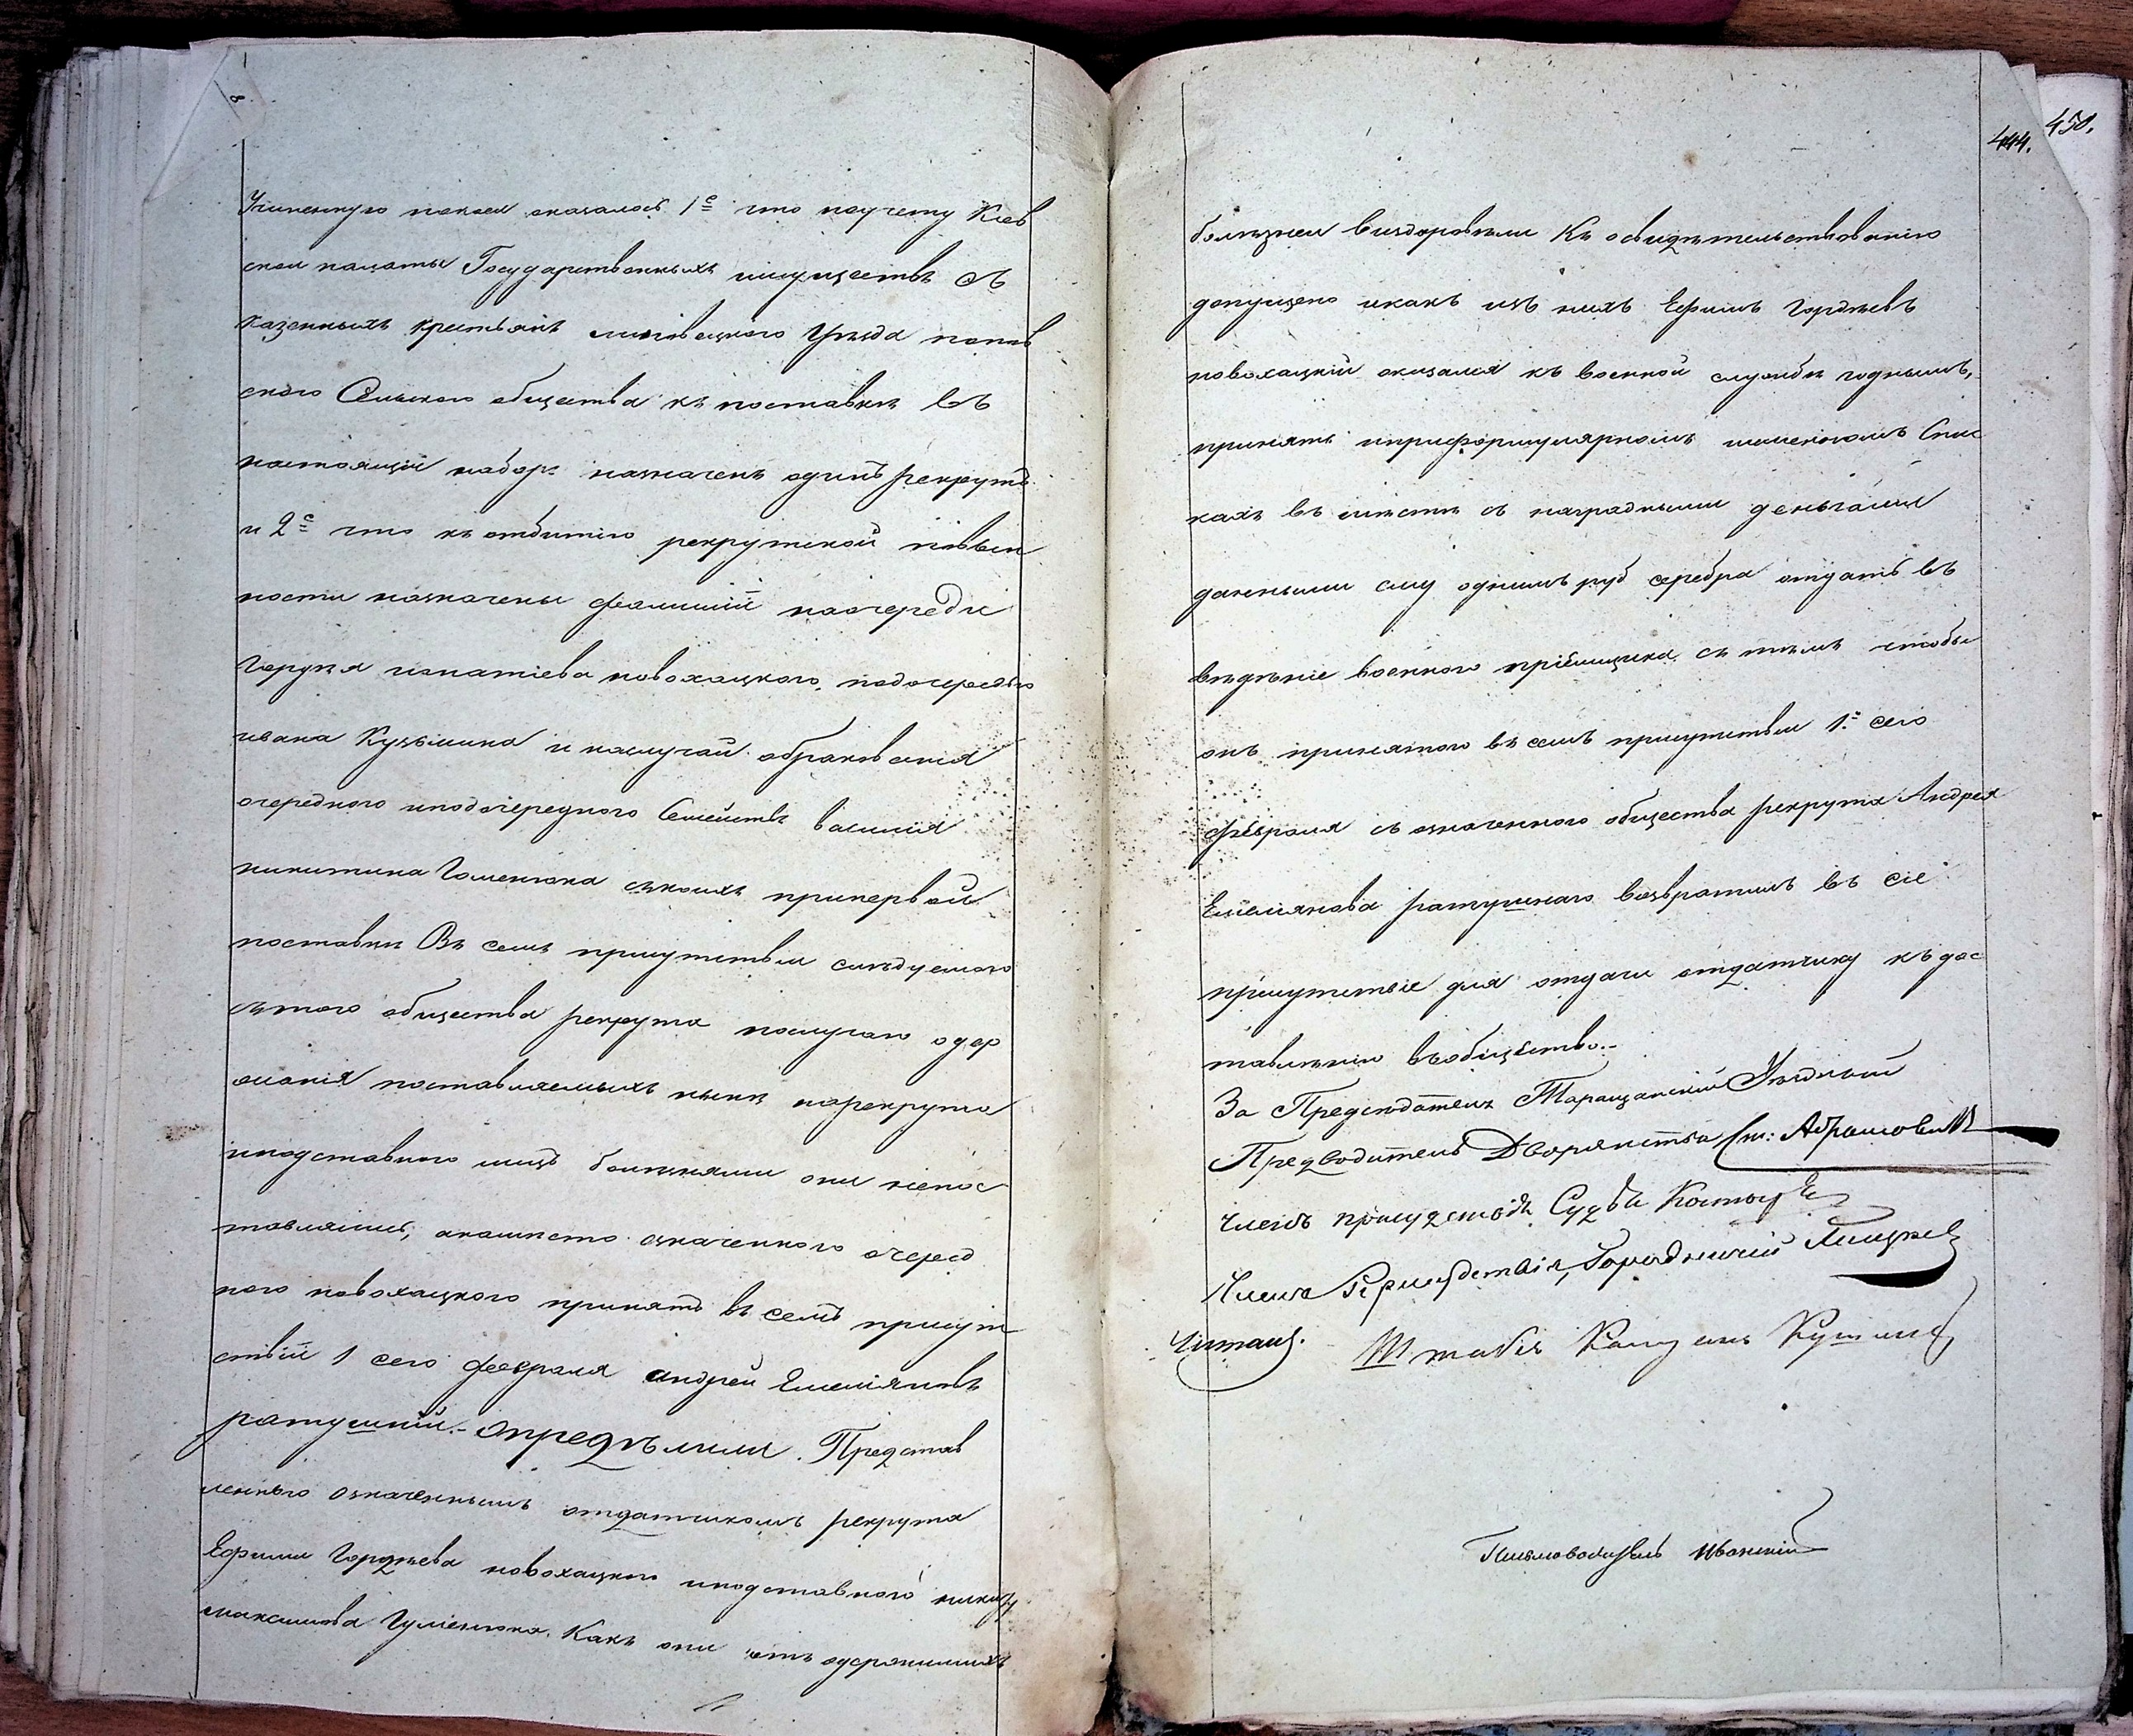 8
Учиненную поколя оказалось 1е что поучету Киев
ской палаты Государственныхъ имуществъ съ
казенныхъ крестьянъ липовецкого Уѣзда попов
ского Сельского общества къ поставкѣ въ
настоящій наборъ назначенъ одинъ рекрутъ
и 2е что къ отбытію рекрутской повин
ности назначены фамилій наочереди
Гордѣя игнатіева новохацкого, подочередью
ивана Кузьмина и наслучай обракованія
очередного иподочередного Семействъ василія
никитина Гоменюка съкоихъ припервой
поставки Въ семъ присутствіи слѣдуемого
сътого общества рекрута послучаю одер
жанія поставляемыхъ ныне нарекрута
иподставного лицъ болѣзнями они непос
тавлялись, анамѣсто означенного очеред
ного новохацкого принятъ въ семъ присут
ствіи 1 сего февраля андрей Емеліяновъ
ратушній.- Опредѣлили. Представ
ленного означеннымъ отдатчикомъ рекрута
Ефима Гордѣева новохацкого иподставного никиту
максимова Гуменюка. Какъ они отъ одержимыхъ
444. 450.
болѣзней виздоровѣли Къ освидѣтельствованію
допущено икакъ изъ нихъ Ефимъ Гордѣевъ
новохацкій оказался къ военной службѣ годнымъ,
принять иприформулярномъ именномъ Спис
кахъ въ мѣстѣ съ наградными деньгами
данными ему однимъ руб серебра отдать въ
вѣдѣніе военного пріемщика съ тѣмъ чтобы
онъ принятого въ семъ присутствіи 1е сего
февраля съ означенного общества рекрута Андрея
Емеліянова ратушнаго возвратилъ въ сіе
присутствіе для отдачи отдатчику къ дос
тавленію въобщество.-
За Председателя Таращанский Уѣздный
Предводитель Дворянства Абрамовичъ
Членъ присудствія Судья
Членъ Присудствія, Городничий
Читалъ. Штабсъ Капитанъ
Письмоводитель Иванскій